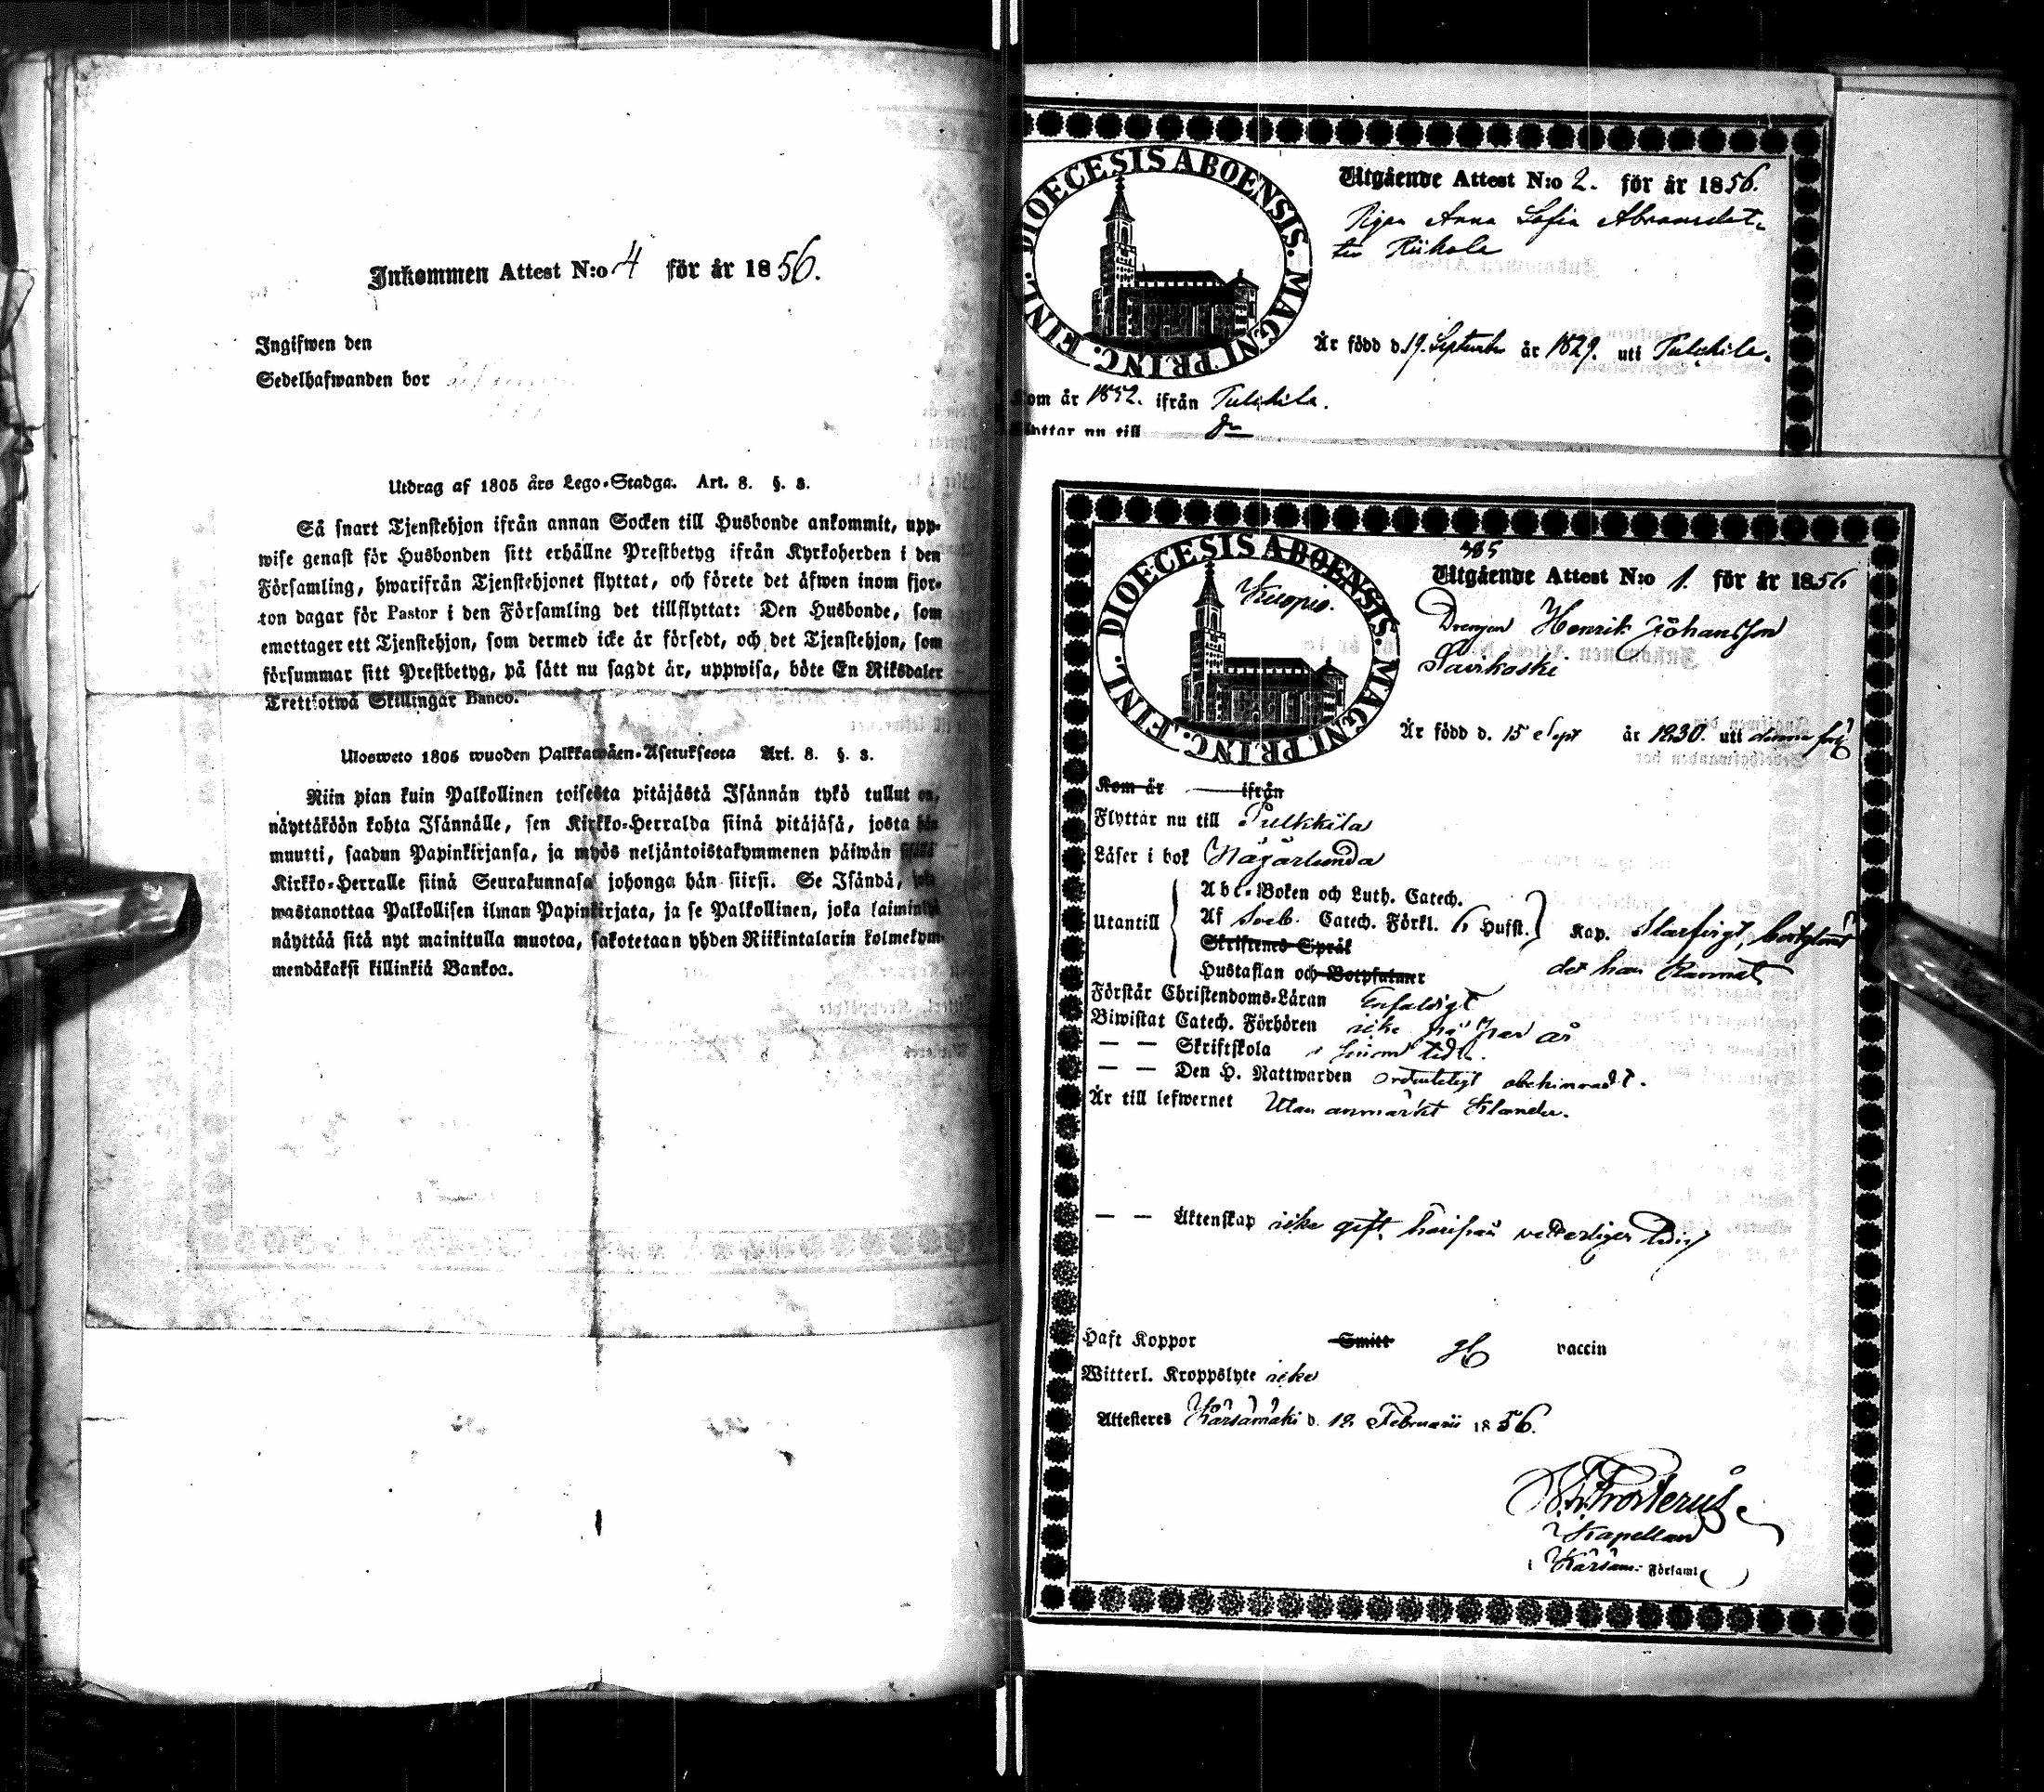 Inkommen Attest N:o 4 för år 1856.
Ingifwen den
Sedelhafwanden bor
Utdrag af 1805 års Lego-Stadga. Art. 8. §. 3.
Så snart Tjenstehjon ifrån annan Socken till Husbonde ankommit, upp-
wise genast för Husbonden sitt erhållne Prestbetyg ifrån Kyrkoherden i den
Församling, hwarifrån Tjenstehjonet flyttat, och förete det äfwen inom fjor-
ton dagar för Pastor i den Församling det tillflyttat: Den Husbonde, som
emottager ett Tjenstehjon, som dermed icke är försedt, och det Tjenstehjon, som
försummar sitt Prestbetyg, på sätt nu sagdt är, uppwisa, böte En Riksdaler
Trettiotwå Skillingar Banco.
Ulosweto 1805 wuoden Palkkawäen-Asetuksesta Art. 8. §. 3.
Niin pian kuin Palkollinen toisesta pitäjästä Isännän tykö tullut on,
näyttäköön kohta Isännälle, sen Kirkko-Herralda siinä pitäjäsä, josta hän
muutti, saadun Papinkirjansa, ja myös neljäntoistakymmenen päiwän
Kirkko-Herralle siinä Seurakunnasa johonga hän siirsi. Se Isändä, joka
wastanottaa Palkollisen ilman Papinkirjata, ja se Palkollinen, joka laiminlyö
näyttää sitä nyt mainitulla muotoa, sakotetaan yhden Riikintalarin kolmekym-
mendäkaksi killinkiä Bankoa.
DIOECESIS ABOENSIS. MAGNI PRINC. FINL.
Utgående Attest N:o 2. för år 1856.
Pigan Anna Sofia Abramsdot-
ter Riikola
Är född d. 19. September år 1829. uti Pulkkila.
Kom år 1852. ifrån Pulkkila.
Flyttar nu till do
DIOECESIS ABOENSIS. MAGNI PRINC. FINL.
Kuopio.
385
Utgående Attest N:o 1. för år 1856
Drengen Henrik Johansson
Savikoski
Är född d. 15 Sept år 1830. uti denna förs
Kom år ifrån
Flyttar nu till Pulkkila
Läser i bok
Utantill
Abc-Boken och Luth. Catech.
Af Sveb. Catech. Förkl. 6 Hufst. Kap.
Skriftenes Språk
Hustaflan och Botpsalmer
det han kunnat
Förstår Christendoms-Läran Enfaldigt
Biwistat Catech. Förhören icke på par år
— — Skriftskola i sinom tid.
— — Den H. Nattwarden ordentligt obehindradt.
Är till lefwernet Utan anmärkt klander.
— — Äktenskap icke gift härifrån vetterligen ledig
Haft Koppor Smitt vaccin
Witterl. Kroppslyte icke
Attesteras Kärsämäki d. 12 Februarii 1856.
Frosterus
Kapellan
i Kärsäm: Församl